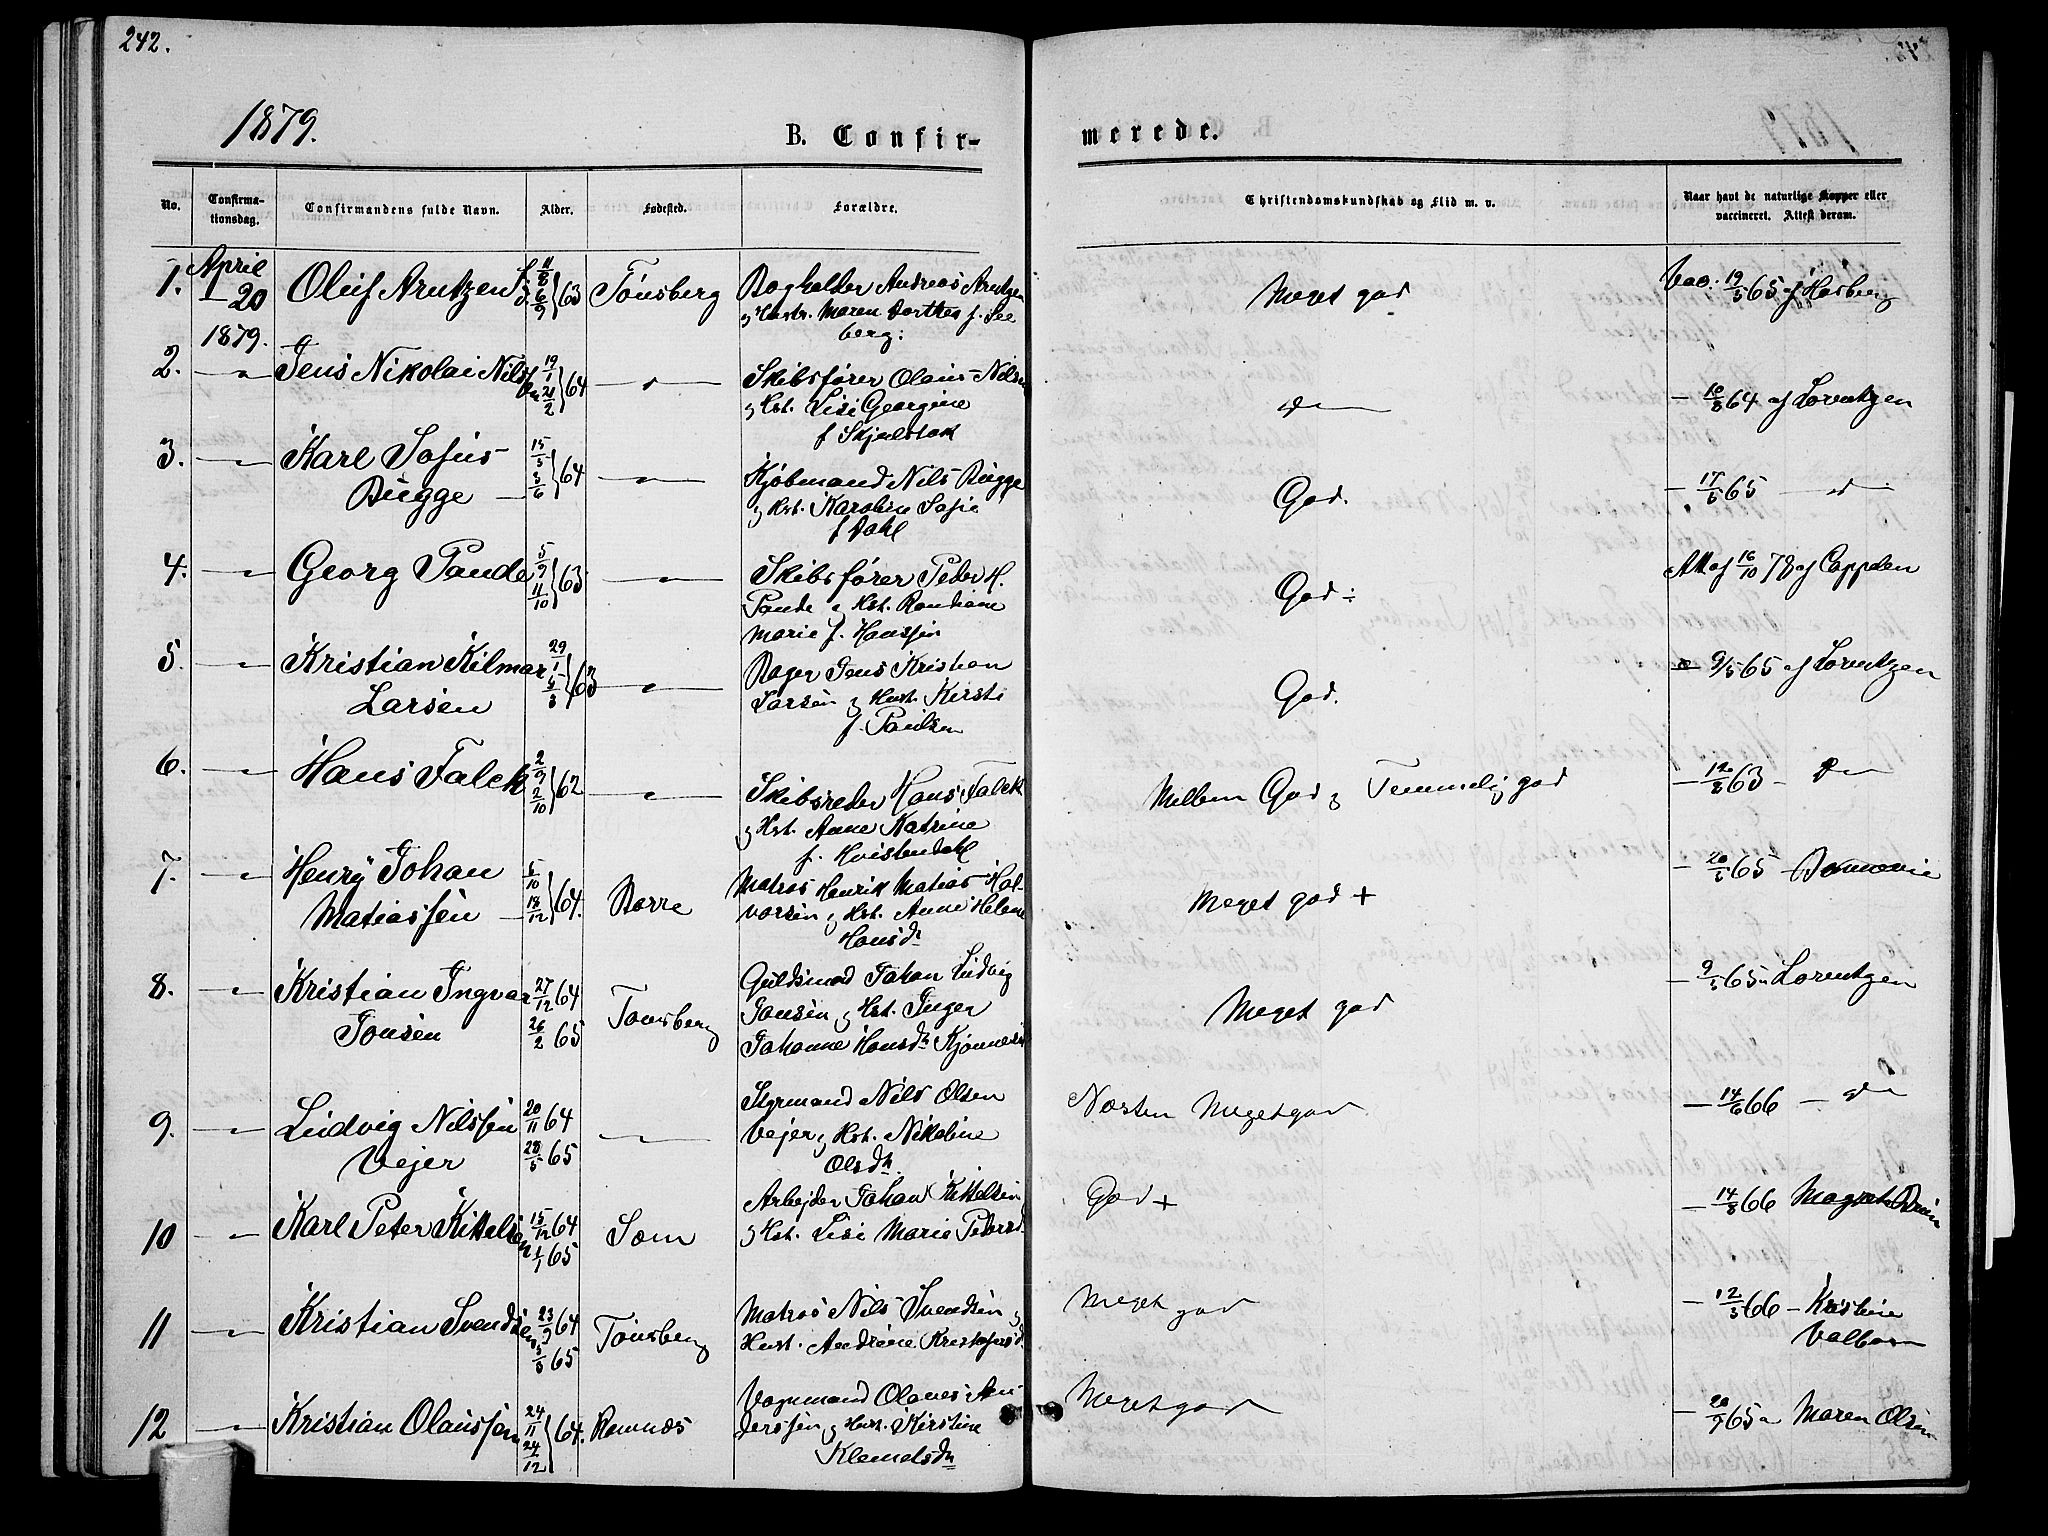 242.
1879.
B. Confir-
merede.
No.
Confirma-
tionsdag.
Confirmandens fulde Navn.
Alder.
Fødested.
Forældre.
Christendomskundskab og Flid m. v.
Naar havt de naturlige Kopper eller
vaccineret. Attest derom.
1. April 20 1879. Oluf Arntzen f. 11/8 d. 6/9 63 Tönsberg
Bogholder Andreas Arntzen
og Hustr. Maren Dorthea f. See
berg.
Meget god
Vac. 19/5 65 af Hasberg
2. Jens Nikolai Nilsen 19/1 21/2 64
Skibsfører Olaus Nilsen
og Hst. Lisi Georgine
f Skjelstak
d
10/8 64 af Lorentzen
3. Karl Sofus
Bugge 15/5 64
Kjøbmand Nils Bugge
og Hst. Karoline Sofie
f Dahl
God.
17/5 65 d
4. Georg Pande 5/9 11/10 63
Skibsfører Peder H.
Pande og Hst. Randiane
Marie f. Hanssen
God ÷
Att af 16/10 78 af Cappelen
5. Kristian Hilmar
Larsen 29/1 63
Bager Jens Kristian
Larsen og Hust. Kirsti
f. Paulsen
God.
9/5 65 af Lorentzen
6. Hans Falck 2/9 2/10 62
Skibsreder Hans Falck
og Hst. Anne Katrine
f. Hvistendahl
Mellem God og Temmelig god
12/8 63 d
7. Henry Johan
Matiassen 5/10 18/12 64. Borre
Matros Henrik Matias Hal-
vorsen og Hst. Anne Helene
Hansdr
Meget god +
20/5 65
8. Kristian Ingvar
Jonsen 27/12 64 26/2 65 Tonsberg
Guldsmed Johan Ludvig
Jonsen og Hst. Inger
Johanne Hansdr
Meget god
9/5 65 Lorentzen
9. Ludvig Nilssen
Vejer 20/11 64 28/5 65
Styrmand Nils Olsen
Vejer og Hst. Nikoline
Olsdr.
Næsten Meget god
14/6 66 d
10 Karl Peter Kittelsen 15/12 64 1/1 65 Sem
Arbejder Johan Kittelsen
og Hst. Lisi Marie Pedersd.
God +
14/8 66
11 Kristian Svendsen 23/9 64 65 Tönsberg
Matros Nils Svendsen og
Hust. Andrine Kristofersd.
Meget god
12/5 66 Kristine
Valborn
12 Kristian Olaussen 24/11 24/12 64. Ramnæs
Vognmand Olaves An-
derssen og Hust. Kirstine
Klemetsdr
Meget god
20/9 65 Maren Olsen